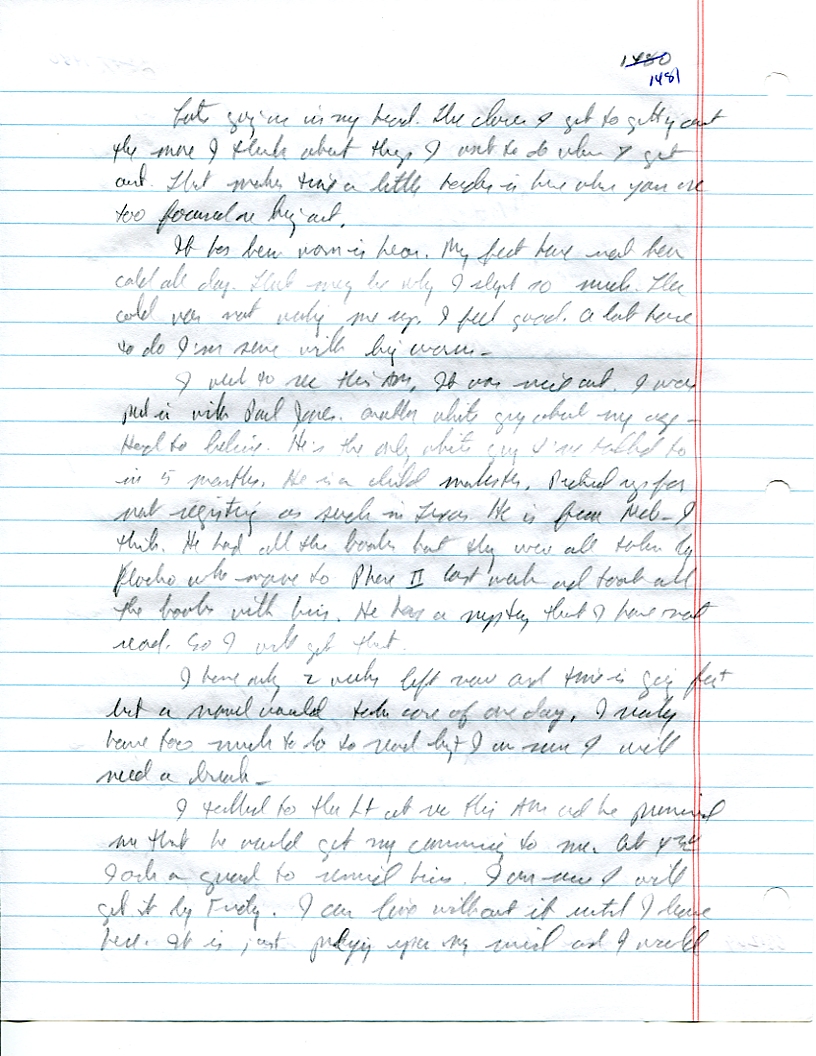 1480
1481
Lots going on in my head. The closer I get to getting out
the more I think about things I want to do when I get
out. That makes time a little harder in here when you are
too focused on being out.
It has been warm in hear. My feet have not been
cold all day. That may be why I slept so much. The
cold was not waking me up. I feel good. A lot have
to do I'm sure with being warm -
I went to rec this AM. It was nice out. I was
put in with Paul Jones. Another white guy about my age -
Hard to believe. He's the only white guy I've talked to
in 5 months. He is a child molester. Picked up for
not registering as such in Texas. He is from Neb - I
think. He had all the books but they were all taken by
who move to Phase II last week and took all
the books with him. He has a mystery that I have not
read. So I will get that.
I have only 2 weeks left now and time is going fast
but a novel would take care of one day. I really
have too much to do to read but I am sure I will
need a break -
I talked to the Lt at rec this AM and he promised
me that he would get my commissary to me. At
I ask a guard to remind him. I am sure I will
get it by Friday. I can live without it until I leave
here. It is just preying upon my mind and I would